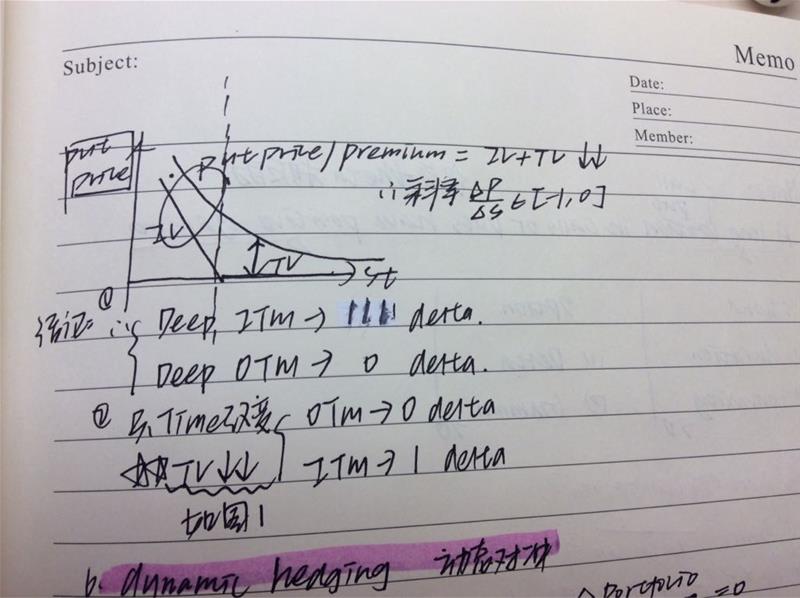 Memo
Subject:
Date:
Place:
Member:
put price
put price/premium = IV+TV ↓↓
∴ 斜率 ΔP/ΔS ∈ [-1,0]
IV
TV
St
结论: ① ∴ Deep ITM → 111 delta.
Deep OTM → 0 delta.
② 与Time改变 OTM → 0 delta
TV ↓↓ ITM → 1 delta
如图1
b. dynamic hedging 动态对冲
Portfolio
=0